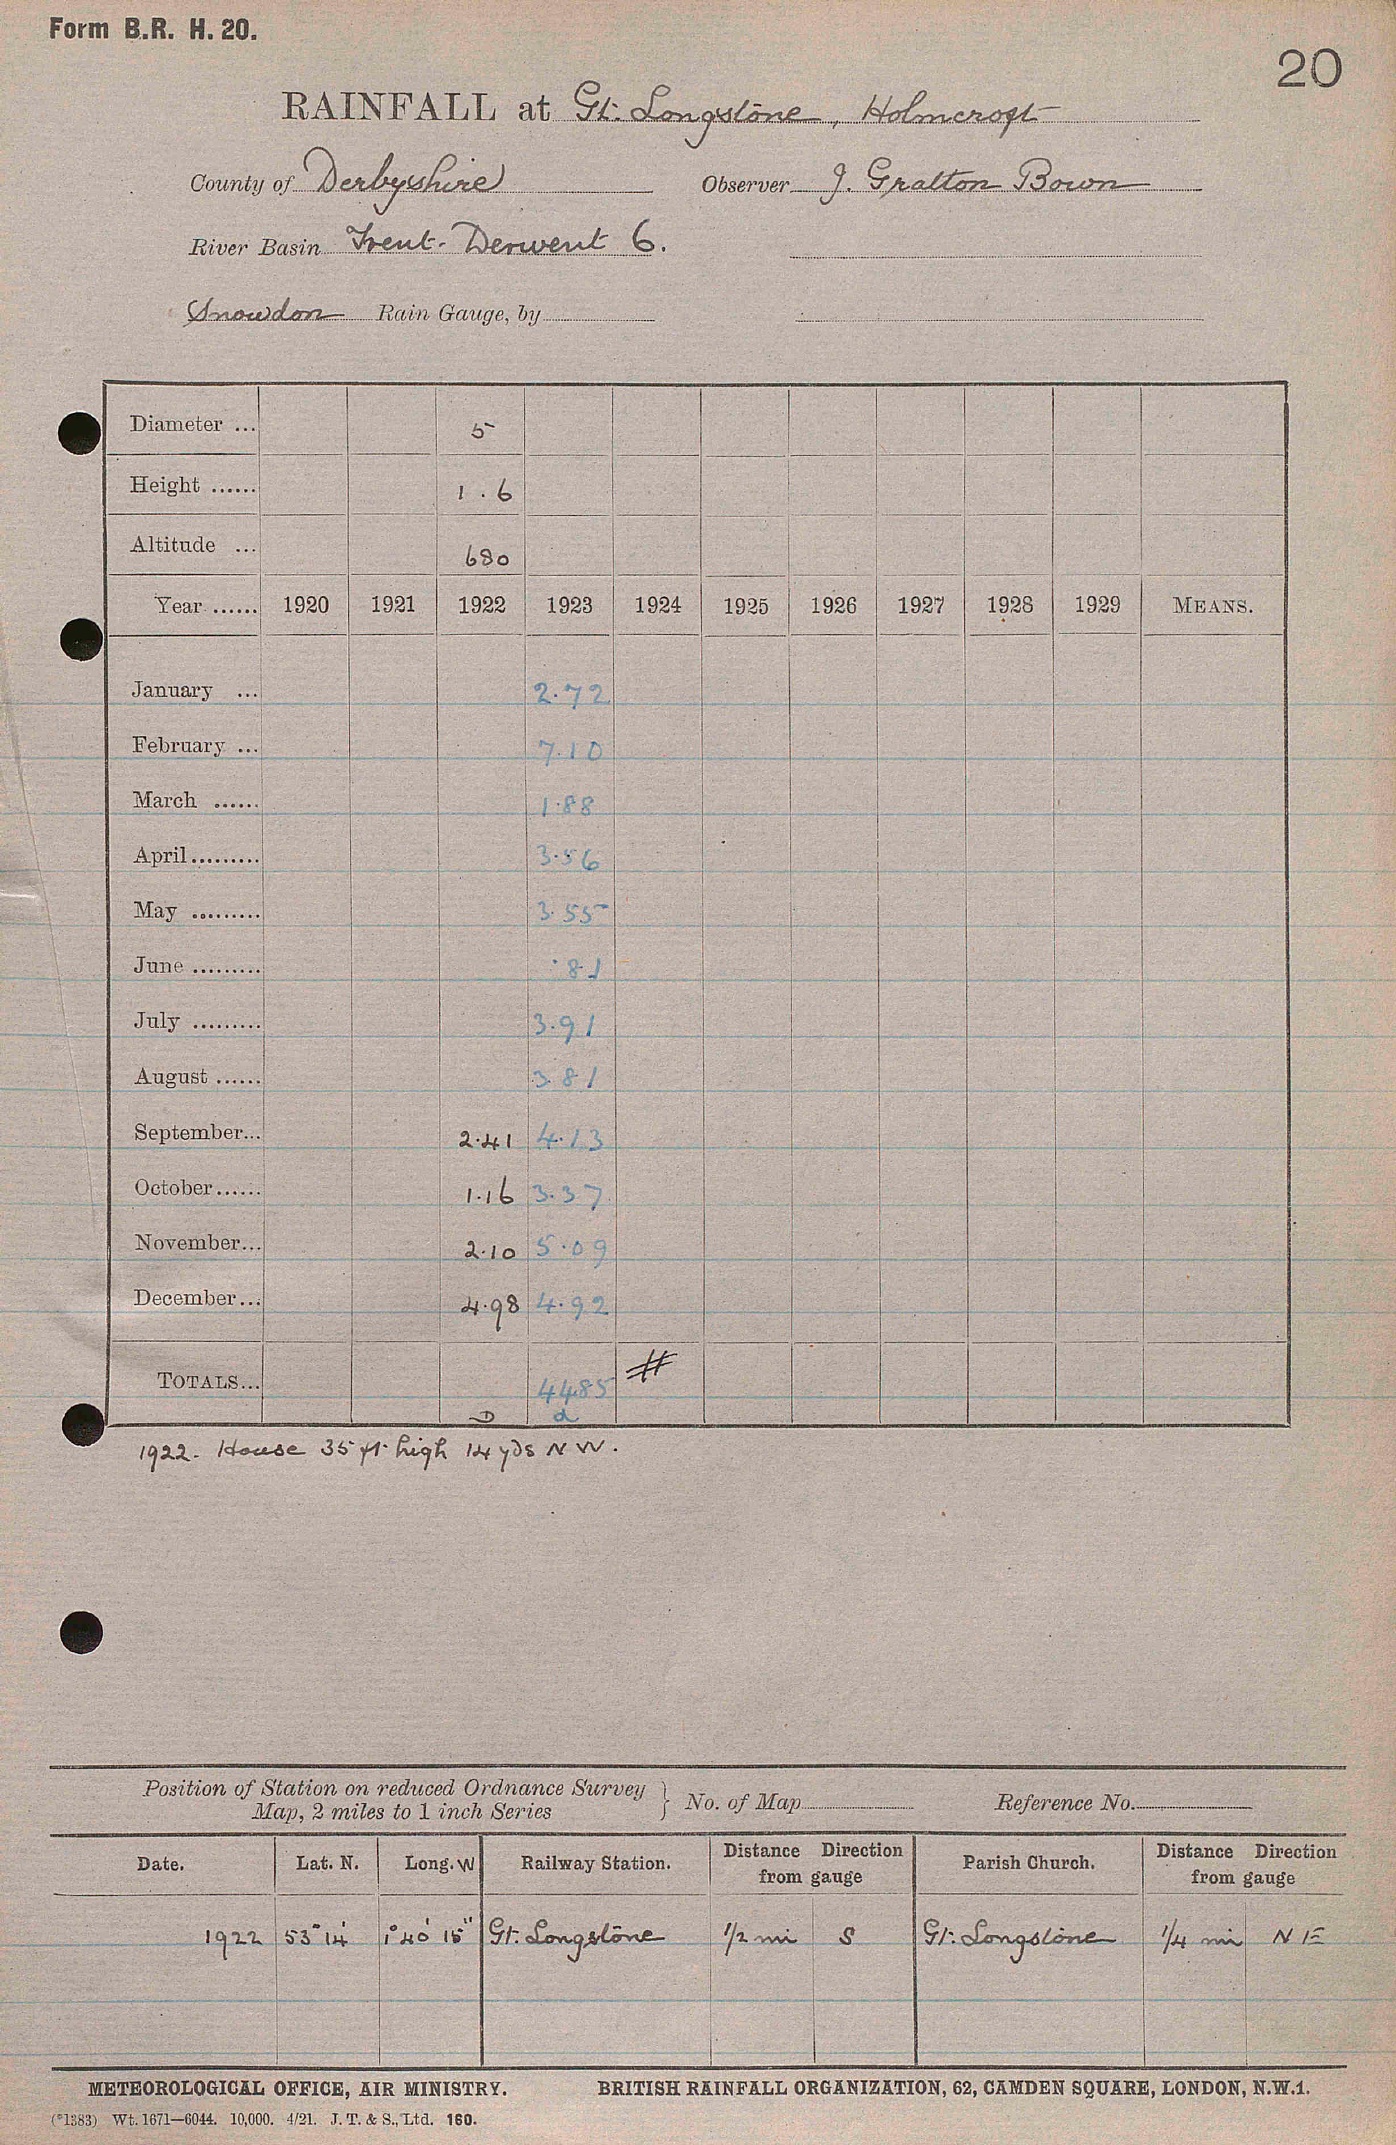 Form B.R. H. 20.
20
RAINFALL at Gt. Longstone, Holmcroft
County of Derbyshire Observer J. Gratton Bown
River Basin Trent. Derwent 6.
Snowdon Rain Gauge, by
Diameter ... 5
Height ...... 1.6
Altitude ... 680
Year ...... 1920 1921 1922 1923 1924 1925 1926 1927 1928 1929 MEANS.
January ... 2.72
February ... 7.10
March ...... 1.88
April ......... 3.56
May ......... 3.55
June ......... .81
July ......... 3.91
August ...... 3.81
September... 2.41 4.13
October ...... 1.16 3.37
November... 2.10 5.09
December... 4.98 4.92
TOTALS... 44.85 #
D d
1922. House 35 ft. high 14 yds N W.
Position of Station on reduced Ordnance Survey
Map, 2 miles to 1 inch Series } No. of Map Reference No.
Date. Lat. N. Long. W Railway Station. Distance Direction from gauge Parish Church. Distance Direction from gauge
1922 53° 14' 1° 40' 15" Gt. Longstone 1/2 mi S Gt. Longstone 1/4 mi N E
METEOROLOGICAL OFFICE, AIR MINISTRY. BRITISH RAINFALL ORGANIZATION, 62, CAMDEN SQUARE, LONDON, N.W.1.
(*1383) Wt. 1671—6044. 10,000. 4/21. J. T. & S., Ltd. 160.